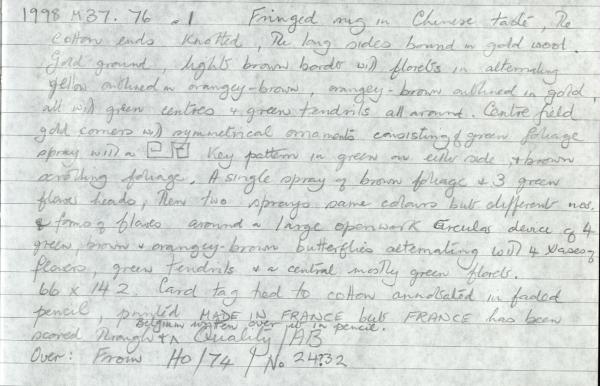 1998 M37. 76 .1 Fringed rug in Chinese taste, The
cotton ends knotted, The long sides bound in gold wool.
Gold ground, light brown border with florets in alternating
yellow outlined in orangey-brown, orangey-brown outlined in gold,
all with green centres + green tendrils all around. Centre field
gold corners with symmetrical ornaments consisting of green foliage
spray with a key pattern in green on either side + brown
scrolling foliage. A single spray of brown foliage & 3 green
flower heads, Then two sprays same colours but different nos.
& forms of flowers around a large openwork circular device of 4
green, brown & orangey-brown butterflies alternating with 4 vases of
flowers, green tendrils & a central mostly green floret.
66 x 142. Card tag tied to cotton annotated in faded
pencil, printed MADE IN FRANCE but FRANCE has been
Belgium written over it in pencil.
scored through & Quality / AB
Over: From Ho/74 / No 2432